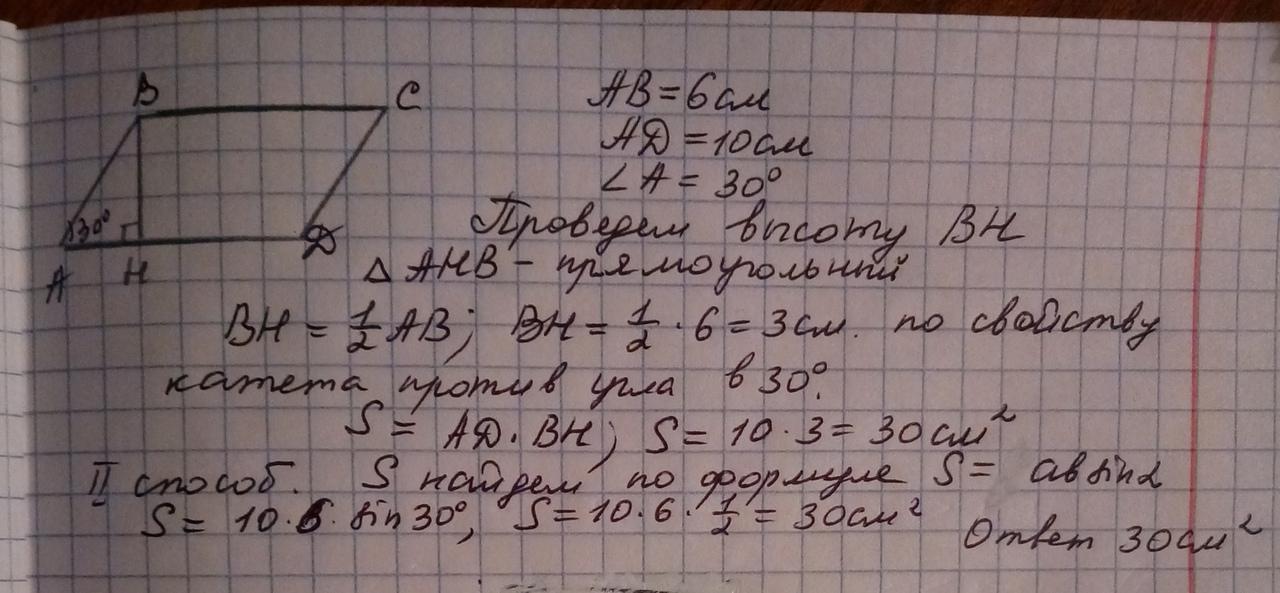 B
C
30°
A
H
D
AB = 6 см
AD = 10 см
∠A = 30°
Проведем высоту BH
Δ AHB - прямоугольный
BH = 1/2 AB; BH = 1/2 · 6 = 3 см. по свойству
катета против угла в 30°.
S = AD · BH; S = 10 · 3 = 30 см²
II способ. S найдем по формуле S = ab sin α
S = 10 · 6 · sin 30°, S = 10 · 6 · 1/2 = 30 см²
Ответ 30 см²